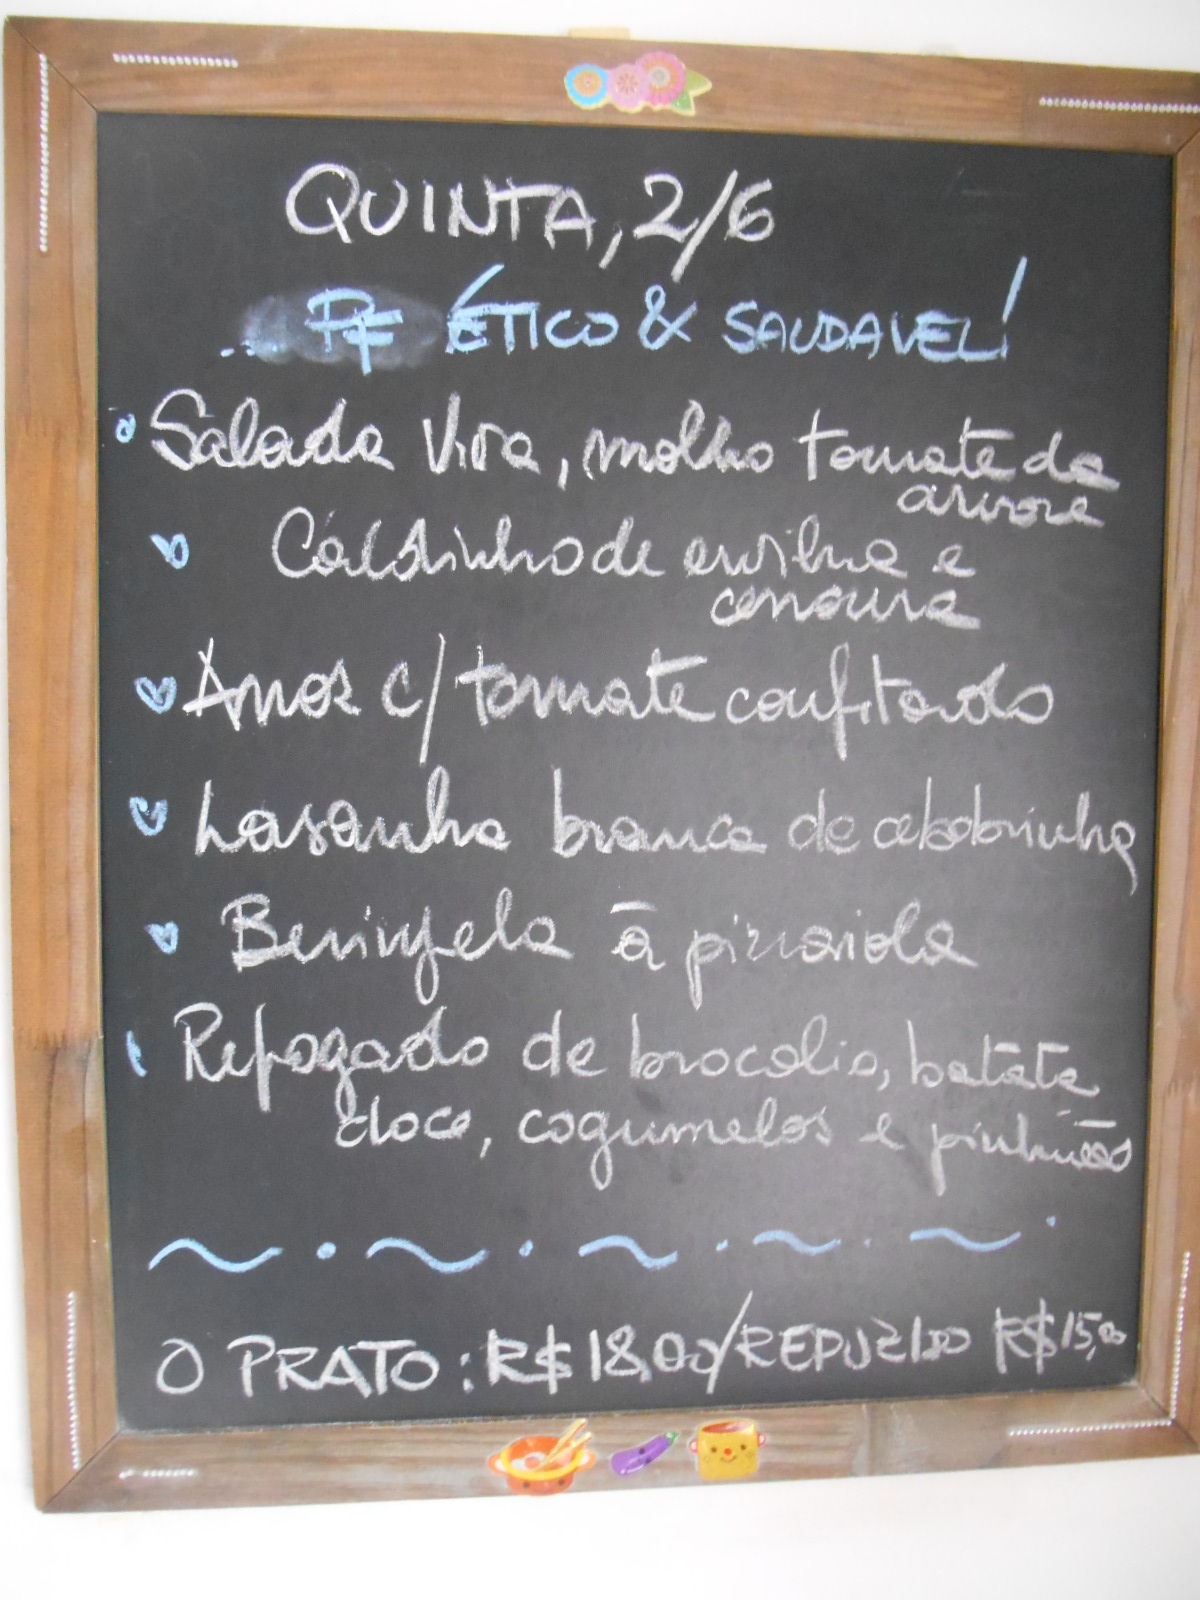 QUINTA, 2/6
PF ÉTICO & SAUDAVEL!
Salada Viva, molho tomate da
arvore
Caldinho de ervilha e
cenoura
Arroz c/ tomate confitado
Lasanha branca de abobrinha
Berinjela à pizzaiola
Refogado de brocolis, batata
doce, cogumelos e pinhões
O PRATO: R$ 18,00/REDUZIDO R$ 15,00